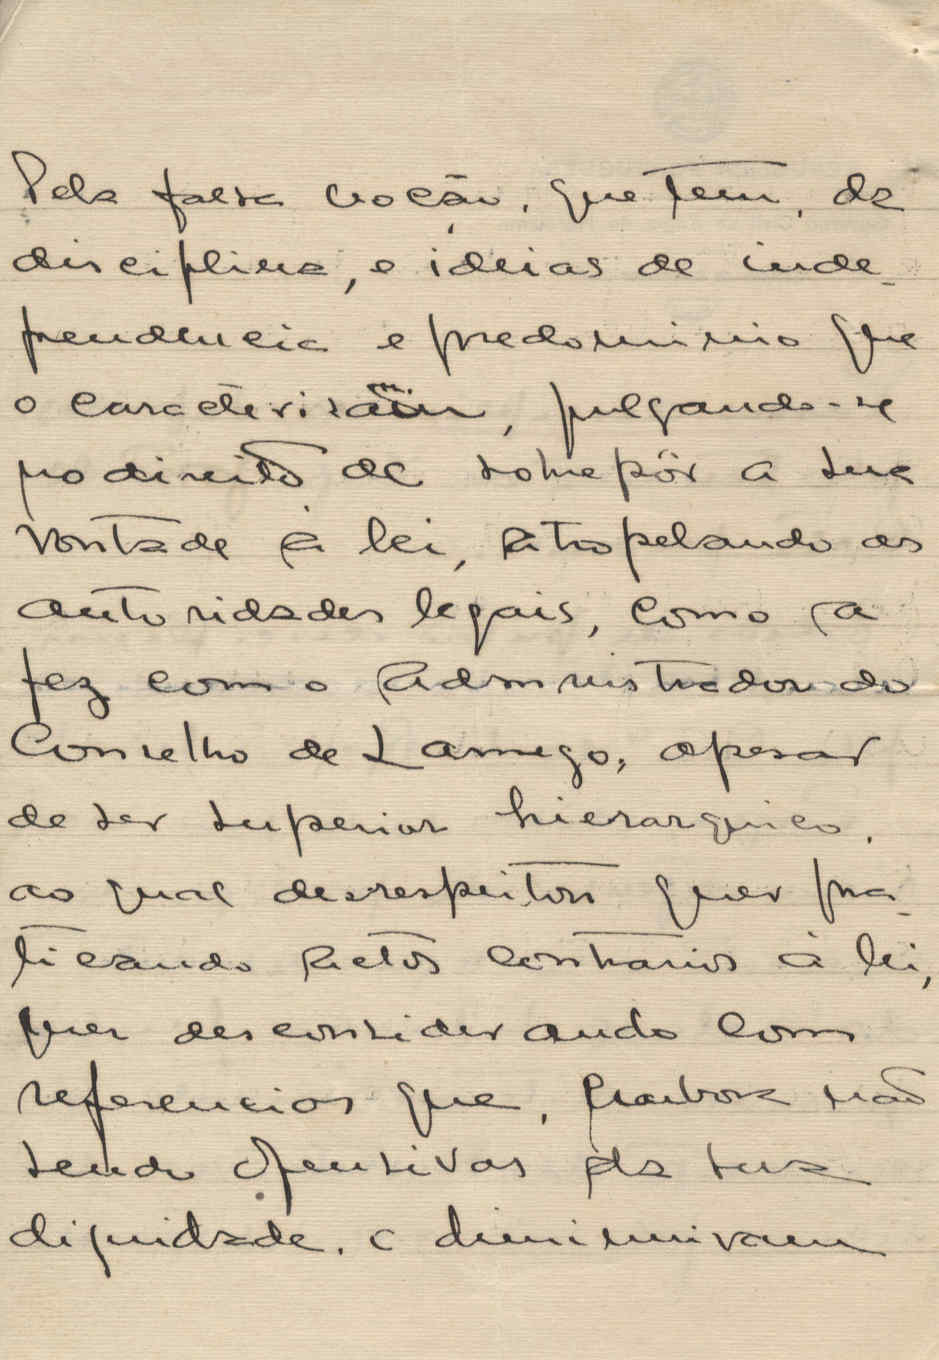 Pela falsa noção, que tem, da
disciplina, e ideias de inde-
pendencia e predominio que
o caracterizam, julgando-se
no direito de sobrepôr a sua
vontade á lei, atropelando as
autoridades legais, como a
fez com o Administrador do
Concelho de Lamego, apesar
de ser superior hierarquico,
ao qual desrespeitou quer pra-
ticando actos contrarios á lei,
quer desconsiderando com
referencias que, embora não
sendo ofensivas da sua
dignidade, o diminuivam